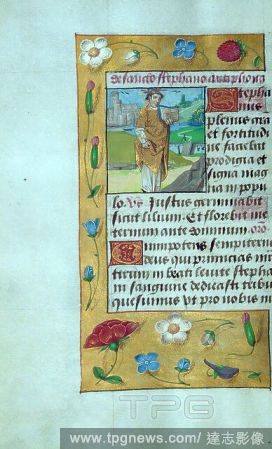 de sancto stephano antiphona
Stepha
nus
plenus gra
et fortitudi
ne faciebat
prodigia et
signa mag
na in popu
lo Vs. Justus germinabit
sicut lilium. Et florebit in e
ternum ante dominum. oro
Omnipotens sempiterne
deus qui primicias mar
tirum in beati leuite stepha
ni sanguine dedicasti tribu
quesumus ut pro nobis in
TPG
www.tpgnews.com/達志影像